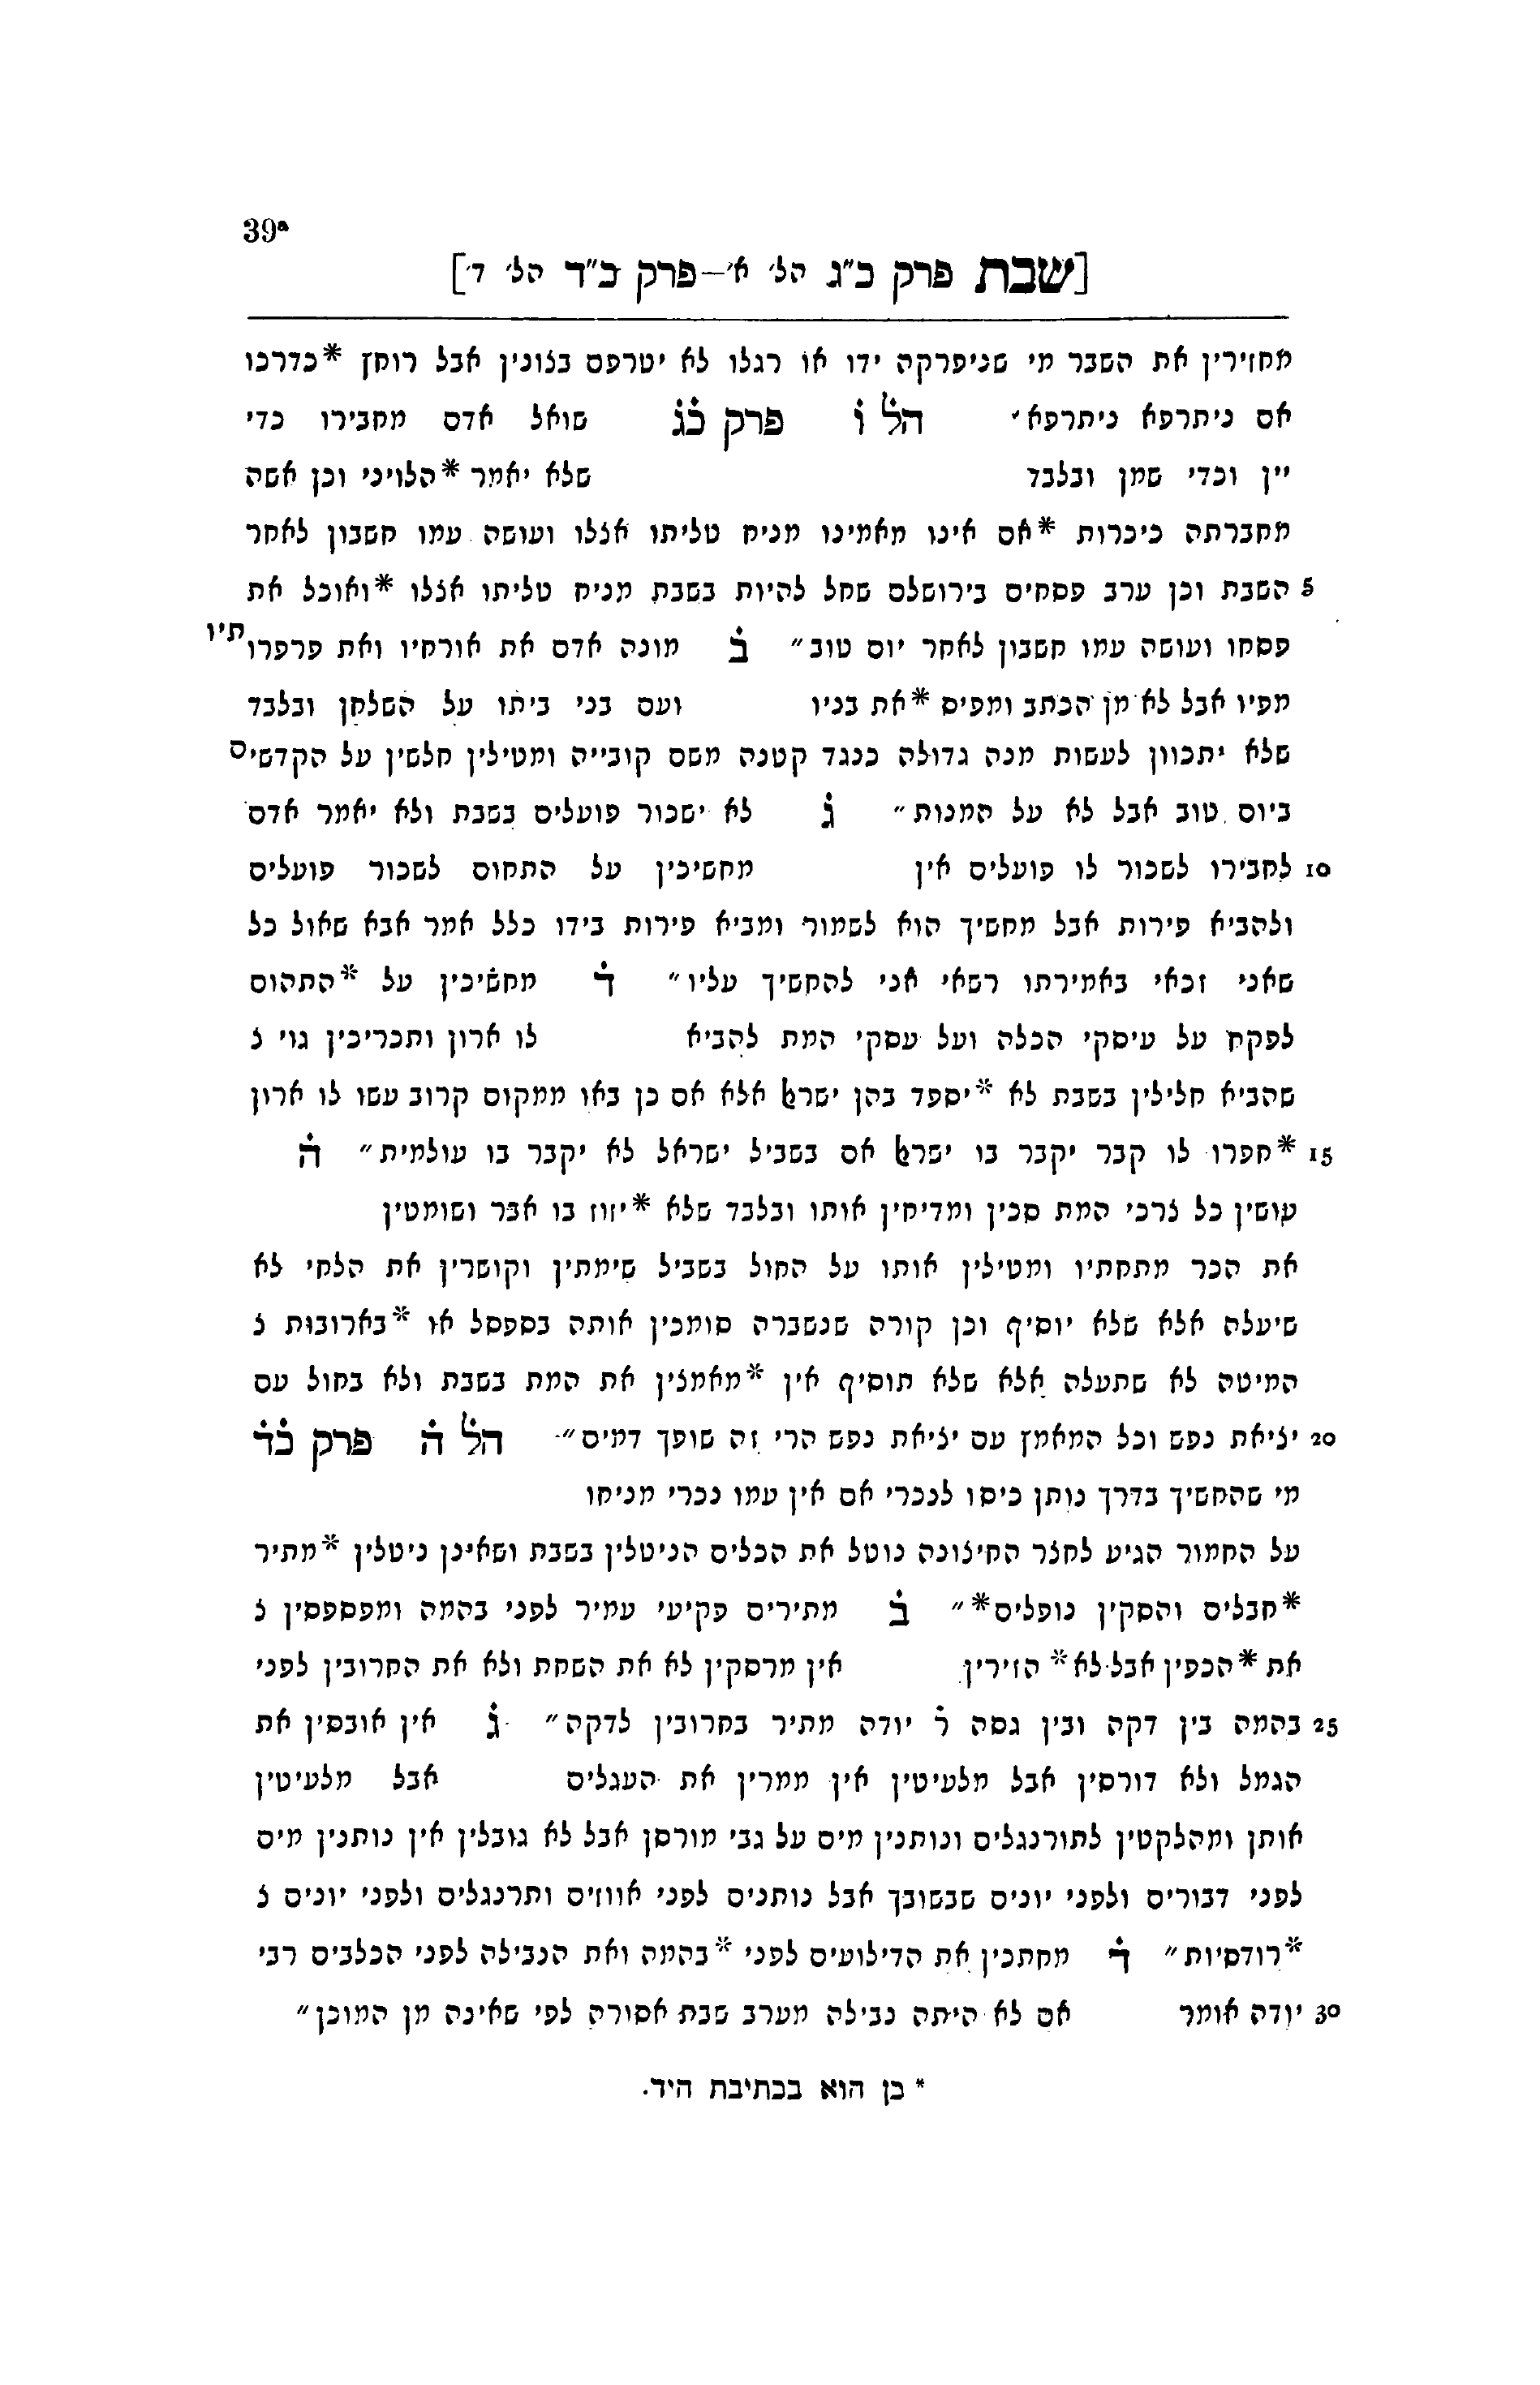 39a
[שבת פרק כ״ג הל׳ א׳—פרק כ״ד הל׳ ד׳]
מחזירין את השבר מי שניפרקה ידו או רגלו לא יטרפם בצונין אבל רוחץ *כדרכו
אם ניתרפא ניתרפא׳ הל ו פרק כג שואל אדם מחבירו כדי
יין וכדי שמן ובלבד שלא יאמר *הלויני וכן אשה
מחברתה כיכרות *אם אינו מאמינו מניח טליתו אצלו ועושה עמו חשבון לאחר
5 השבת וכן ערב פסחים בירושלם שחל להיות בשבת מניח טליתו אצלו *ואוכל את
פסחו ועושה עמו חשבון לאחר יום טוב״ ב מונה אדם את אורחיו ואת פרפרותיו
מפיו אבל לא מן הכתב ומפיס *את בניו ועם בני ביתו על השלחן ובלבד
שלא יתכוון לעשות מנה גדולה כנגד קטנה משם קובייה ומטילין חלשין על הקדשים
ביום טוב אבל לא על המנות״ ג לא ישכור פועלים בשבת ולא יאמר אדם
10 לחבירו לשכור לו פועלים אין מחשיכין על התחום לשכור פועלים
ולהביא פירות אבל מחשיך הוא לשמור ומביא פירות בידו כלל אמר אבא שאול כל
שאני זכאי באמירתו רשאי אני להחשיך עליו״ ד מחשיכין על *התהום
לפקח על עיסקי הכלה ועל עסקי המת להביא לו ארון ותכריכין גוי צ
שהביא חלילין בשבת לא *יספד בהן ישרﭏ אלא אם כן באו ממקום קרוב עשו לו ארון
15 *חפרו לו קבר יקבר בו ישרﭏ אם בשביל ישראל לא יקבר בו עולמית״ ה
עושין כל צרכי המת סכין ומדיחין אותו ובלבד שלא *יזוז בו אבר ושומטין
את הכר מתחתיו ומטילין אותו על החול בשביל שימתין וקושרין את הלחי לא
שיעלה אלא שלא יוסיף וכן קורה שנשברה סומכין אותה בספסל או *בארובות צ
המיטה לא שתעלה אלא שלא תוסיף אין *מאמצין את המת בשבת ולא בחול עם
20 יציאת נפש וכל המאמץ עם יציאת נפש הרי זה שופך דמים״ הל ה פרק כד
מי שהחשיך בדרך נותן כיסו לנכרי אם אין עמו נכרי מניחו
על החמור הגיע לחצר החיצונה נוטל את הכלים הניטלין בשבת ושאינן ניטלין *מתיר
*חבלים והסקין נופלים*״ ב מתירים פקיעי עמיר לפני בהמה ומפספסין צ
את *הכפין אבל לא* הזירין אין מרסקין לא את השחת ולא את החרובין לפני
25 בהמה בין דקה ובין גסה ר יודה מתיר בחרובין לדקה״ ג אין אובסין את
הגמל ולא דורסין אבל מלעיטין אין ממרין את העגלים אבל מלעיטין
אותן ומהלקטין לתורנגלים ונותנין מים על גבי מורסן אבל לא גובלין אין נותנין מים
לפני דבורים ולפני יונים שבשובך אבל נותנים לפני אווזים ותרנגלים ולפני יונים צ
*רודסיות״ ד מחתכין את הדילועים לפני *בהמה ואת הנבילה לפני הכלבים רבי
30 יודה אומר אם לא היתה נבילה מערב שבת אסורה לפי שאינה מן המוכן״
* כן הוא בכתיבת היד.